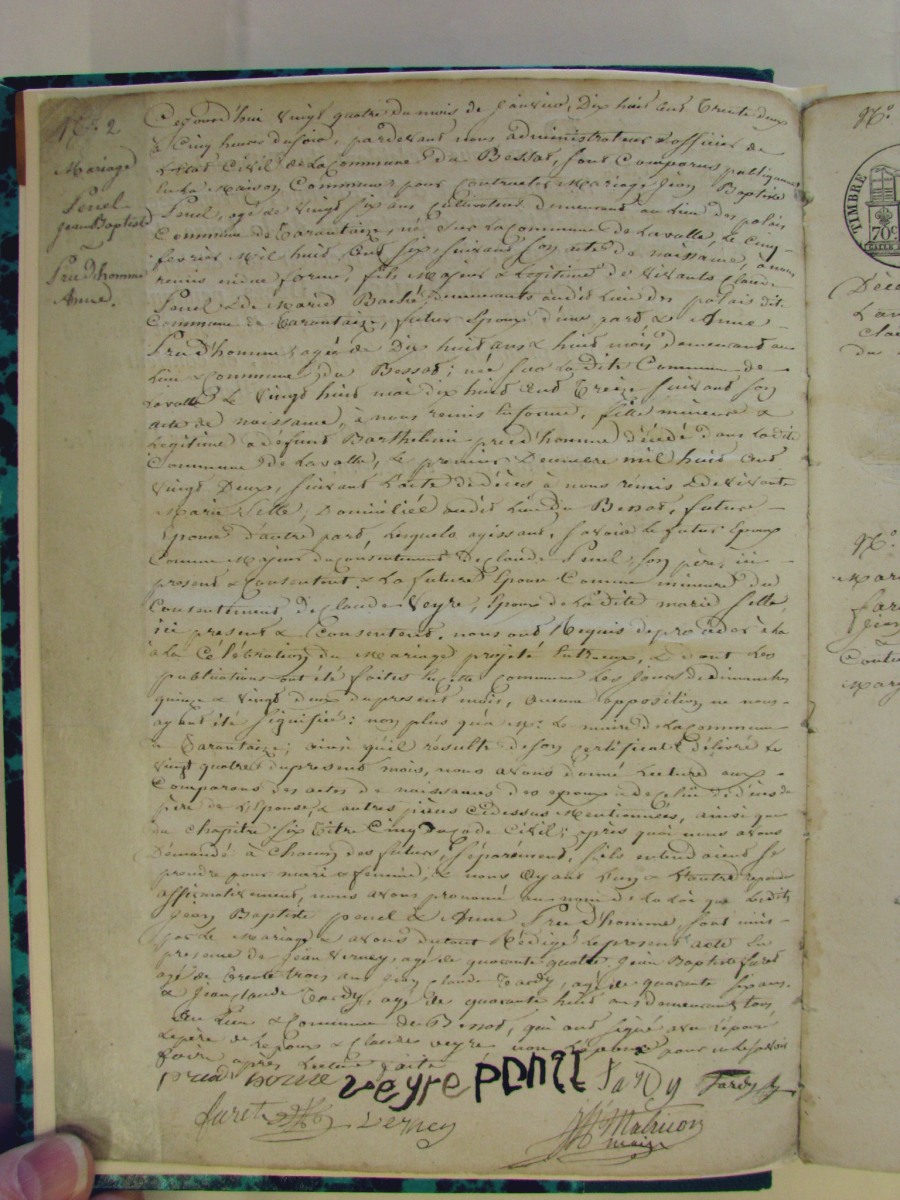 N.° 2
Mariage
Penel
Jean Baptiste
&
Prud'homme
Anne.
Cejourd'hui vingt quatre du mois de janvier, dix huit cent trente deux
à cinq heures du soir, pardevant nous administrateur & officier de
L'état civil de la commune du Bessat, sont comparus publiquement
en la maison commune pour contracter mariage Jean Baptiste
Penel, agé de vingt six ans cultivateur demeurant au lieu des palais
commune de Tarantaize, né sur la commune de Lavalla, le cinq
février mil huit cent six, suivant son acte de naissance, à nous
remis en forme, fils majeur & légitime de vivants Claude
Penel & de Marie Baché demeurants audit lieu des palais dit.
commune de Tarantaize, futur époux d'une part & Anne
Prud'homme, agée de dix huit ans & huit mois demeurant au
lieu & commune du Bessat; née sur la dite commune de
Lavalla le vingt huit mai dix huit cent treize suivant son
acte de naissance, à nous remis en forme, fille mineure &
légitime à défunt Barthelemi prud'homme décédé dans la dite
commune de Lavalla, le premier décembre mil huit cent
vingt deux, suivant l'acte de décès à nous remis & de vivante
Marie Fille, domiciliée audit lieu du Bessat, future
épouse d'autre part, lesquels agissant, savoir le futur époux
comme majeur du consentement de Claude Penel, son père, ici
présent & consentant & la future épouse comme mineure du
consentement de Claude Veyre, époux de la dite marie fille
ici présent & consentent. nous ont requis de procéder à la
à la célébration du mariage projeté entr'eux, & dont les
publications ont été faites en cette commune les jours de dimanches
quinze & vingt deux du présent mois, aucune opposition ne nous
ayant été signifiée: non plus qu'à Mr. le maire de la commune
de Tarantaize; ainsi qu'il résulte de son certificat délivré le
vingt quatre du présent mois, nous avons donné lecture aux
comparans des actes de naissances des époux & de celui de décès du
père de l'épouse, & autres pièces cidessus mentionnées, ainsi que
du chapitre six titre cinq du code civil; après quoi nous avons
demandé à chacun des futurs, séparément, s'ils entendaient se
prendre pour mari & femme, & nous ayant l'un & l'autre répondu
affirmativement, nous avons prononcé au nom de la loi que lesdits
Jean Baptiste penel & Anne Prud'homme sont unis
par le mariage & avons du tout rédigé le présent acte en
présence de Jean Verney, agé de quarante quatre, Jean Baptiste furet
agé de trente trois ans Jean Claude Tardy, agé de quarante six ans.
& Jean Claude Tardy, agé de quarante huit ans demeurants tous
au lieu & commune du Bessat, qui ont signé avec l'épouse
le père de l'époux & Claude veyre non l'époux pour ne le savoir
faire après lecture faite
prud'homme veyre penel Tardy Tardy
furet verney Matricon
maire
N.°
TIMBRE
70c
Décè
du
N.°
Mari
fure
Jean